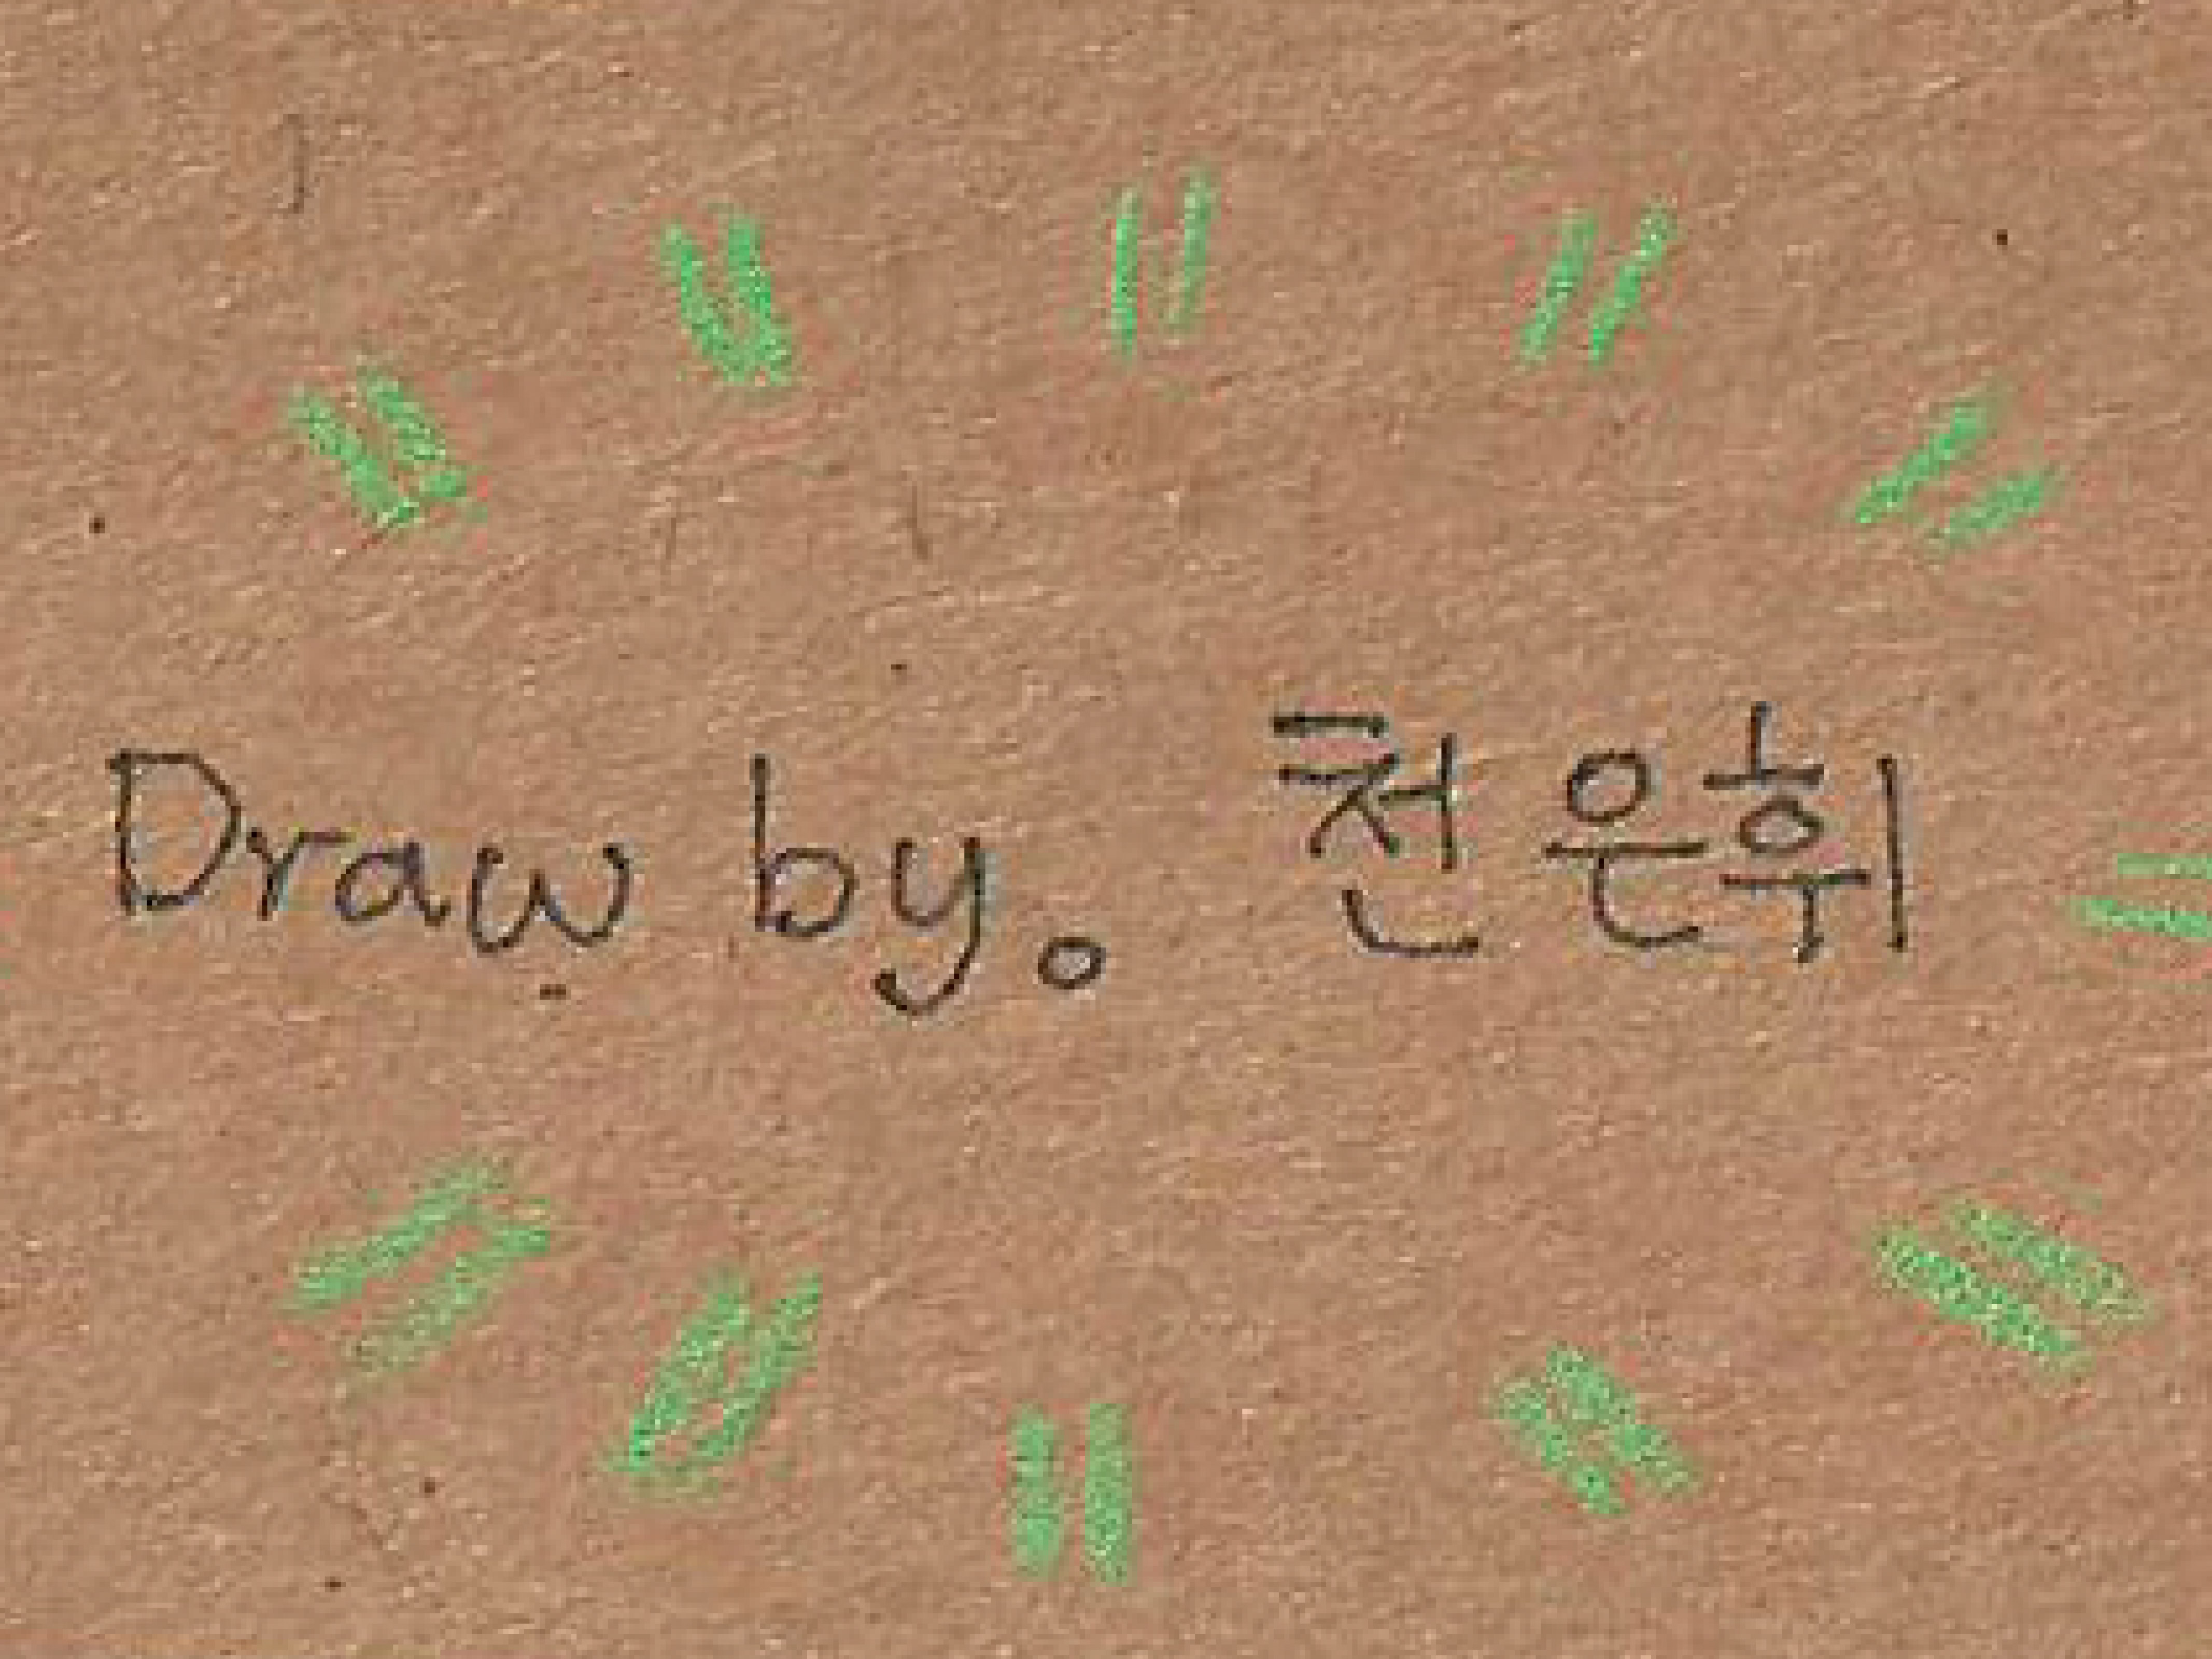 Draw by. 천은휘